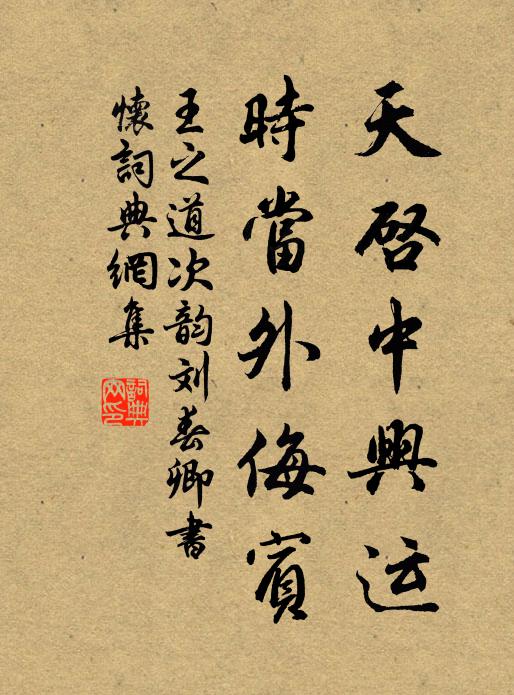 天启中興运
時當外侮賓
王之道次韵刘春卿書
懷詞典網集
詞典網印